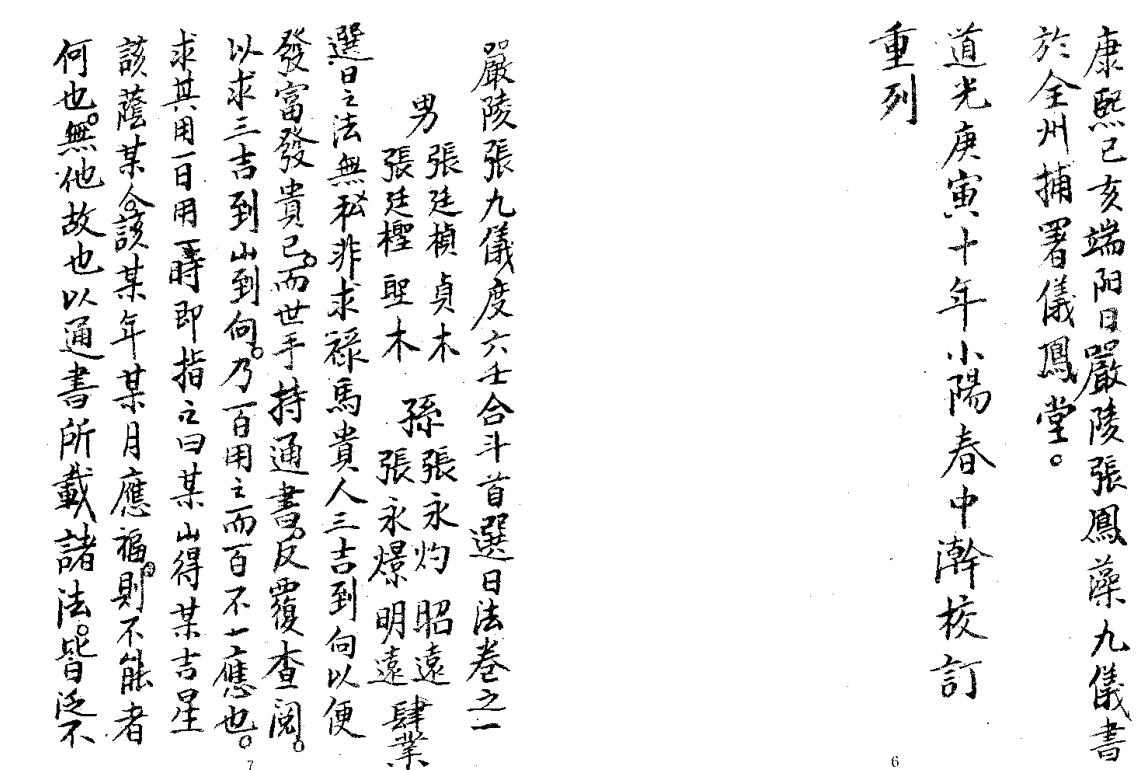 康熙己亥端陽日嚴陵張鳳藻九儀書
於全州捕署儀鳳堂。
道光庚寅十年小陽春中澣校訂
重列
6
嚴陵張九儀度六壬合斗首選日法卷之一
男 張廷楨 貞木 孫 張永灼 昭遠
張廷檉 聖木 張永爆 明遠 肆業
選日之法無私非求祿馬貴人三吉到向以便
發富發貴已。而世手持通書。反覆查閱。
以求三吉到山到向。乃百用之而百不一應也。
求其用一日用一時即指之曰某山得某吉星
該蔭某命該某年某月應福。則不能者
何也。無他故也以通書所載諸法。皆泛不
7